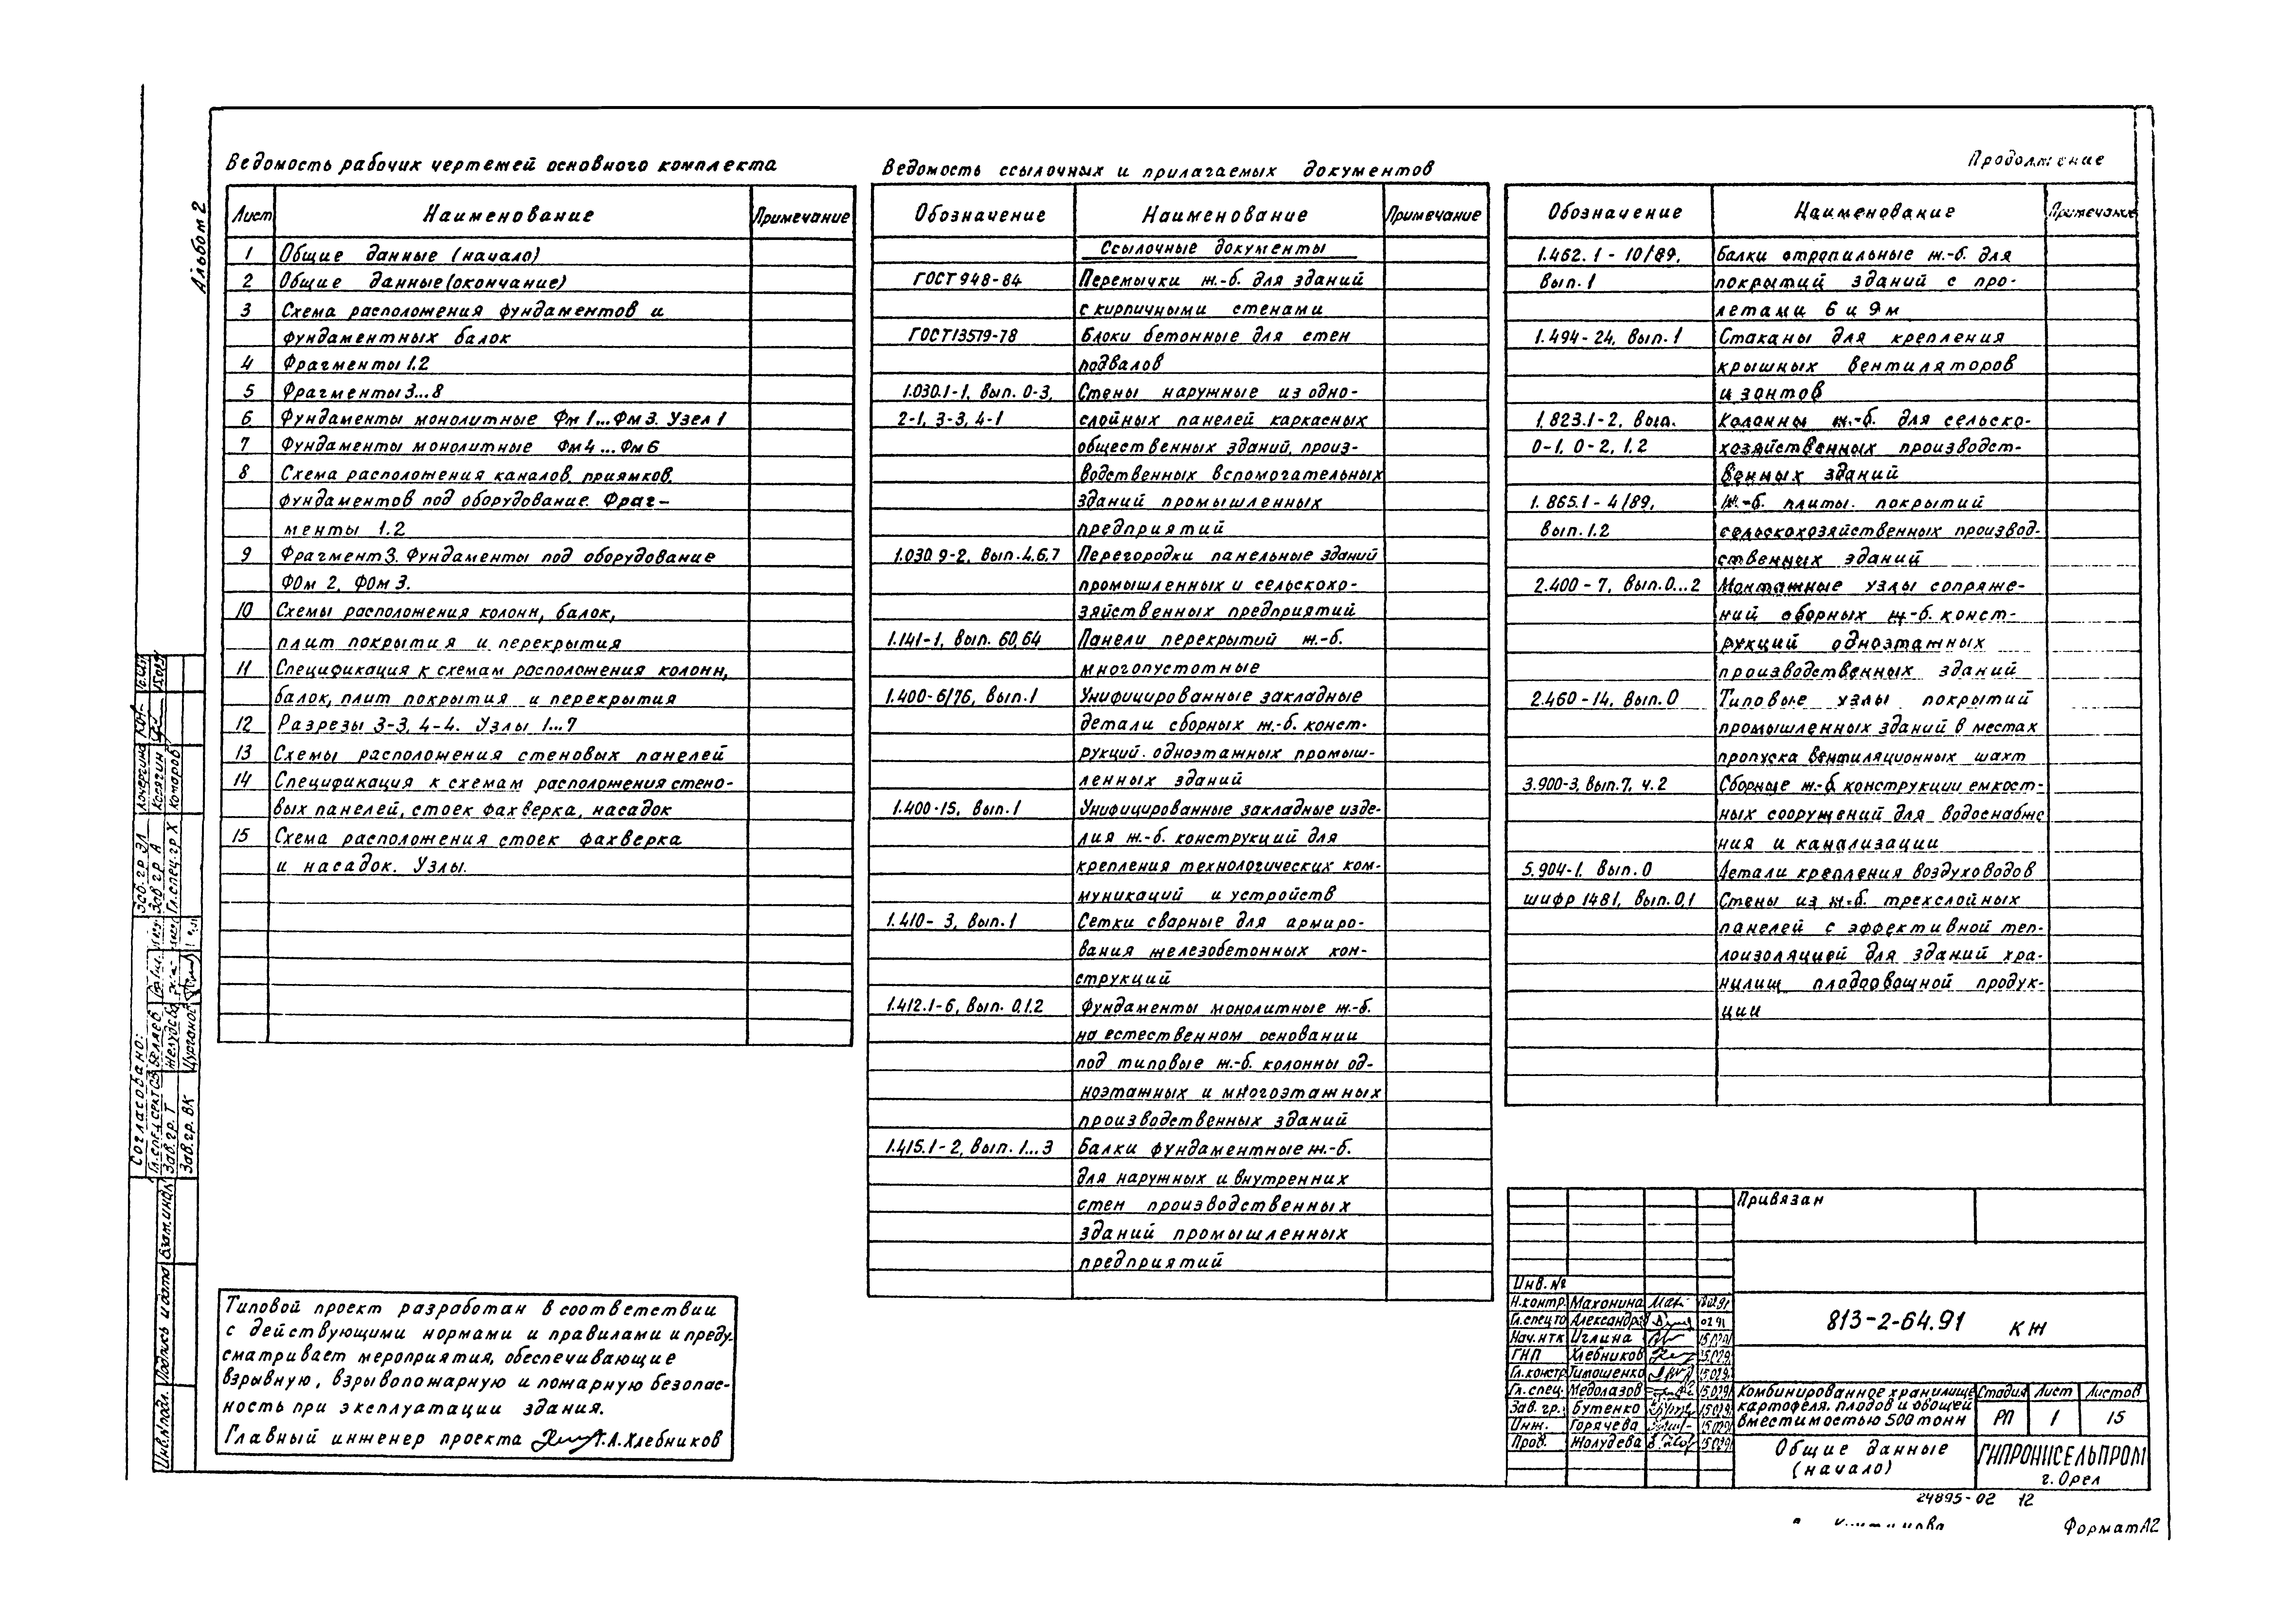 Альбом 2
Ведомость рабочих чертежей основного комплекта
Лист Наименование Примечание
1 Общие данные (начало)
2 Общие данные (окончание)
3 Схема расположения фундаментов и
фундаментных балок
4 Фрагменты 1.2
5 Фрагменты 3...8
6 Фундаменты монолитные Фм 1...Фм 3. Узел 1
7 Фундаменты монолитные Фм 4...Фм 6
8 Схема расположения каналов, приямков,
фундаментов под оборудование. Фраг-
менты 1.2
9 Фрагмент 3. Фундаменты под оборудование
ФОм 2, ФОм 3.
10 Схемы расположения колонн, балок,
плит покрытия и перекрытия
11 Спецификация к схемам расположения колонн,
балок, плит покрытия и перекрытия
12 Разрезы 3-3, 4-4. Узлы 1...7
13 Схемы расположения стеновых панелей
14 Спецификация к схемам расположения стено-
вых панелей, стоек фахверка, насадок
15 Схема расположения стоек фахверка
и насадок. Узлы.
Типовой проект разработан в соответствии
с действующими нормами и правилами и преду-
сматривает мероприятия, обеспечивающие
взрывную, взрывопожарную и пожарную безопас-
ность при эксплуатации здания.
Главный инженер проекта Г.А.Хлебников
Ведомость ссылочных и прилагаемых документов
Обозначение Наименование Примечание
Ссылочные документы
ГОСТ 948-84 Перемычки ж.-б. для зданий
с кирпичными стенами
ГОСТ 13579-78 Блоки бетонные для стен
подвалов
1.030.1-1, вып. 0-3, Стены наружные из одно-
2-1, 3-3, 4-1 слойных панелей каркасных
общественных зданий, произ-
водственных вспомогательных
зданий промышленных
предприятий
1.030.9-2, вып. 4,6,7 Перегородки панельные зданий
промышленных и сельскохо-
зяйственных предприятий
1.141-1, вып. 60,64 Панели перекрытий ж.-б.
многопустотные
1.400-6/76, вып. 1 Унифицированные закладные
детали сборных ж.-б. конст-
рукций одноэтажных промыш-
ленных зданий
1.400-15, вып. 1 Унифицированные закладные изде-
лия ж.-б. конструкций для
крепления технологических ком-
муникаций и устройств
1.410-3, вып. 1 Сетки сварные для армиро-
вания железобетонных кон-
струкций
1.412.1-6, вып. 0,1.2 Фундаменты монолитные ж.-б.
на естественном основании
под типовые ж.-б. колонны од-
ноэтажных и многоэтажных
производственных зданий
1.415.1-2, вып. 1...3 Балки фундаментные ж.-б.
для наружных и внутренних
стен производственных
зданий промышленных
предприятий
Продолжение
Обозначение Наименование Примечание
1.462.1-10/89, Балки стропильные ж.-б. для
вып. 1 покрытий зданий с про-
летами 6 и 9 м
1.494-24, вып. 1 Стаканы для крепления
крышных вентиляторов
и зонтов
1.823.1-2, вып. Колонны ж.-б. для сельско-
0-1, 0-2, 1.2 хозяйственных производст-
венных зданий
1.865.1-4/89, ж.-б. плиты покрытий
вып. 1.2 сельскохозяйственных производ-
ственных зданий
2.400-7, вып. 0...2 Монтажные узлы сопряже-
ний сборных ж.-б. конст-
рукций одноэтажных
производственных зданий
2.460-14, вып. 0 Типовые узлы покрытий
промышленных зданий в местах
пропуска вентиляционных шахт
3.900-3, вып. 7, ч. 2 Сборные ж.-б. конструкции емкост-
ных сооружений для водоснабже
ния и канализации
5.904-1, вып. 0 Детали крепления воздуховодов
шифр 1481, вып. 0,1 Стены из ж.-б. трехслойных
панелей с эффективной теп-
лоизоляцией для зданий хра-
нилищ плодоовощной продук-
ции
Привязан
Инв. №
Н.контр. Махонина
Гл.спец.то Александров 02 91
Нач.нтк Иглина 15.02.91
ГНП Хлебников 15.02.91
Гл.констр Тимошенко 15.02.91
Гл.спец. Медолазов 15.02.91
Зав. гр. Бутенко 15.02.91
Инж. Горячева 15.02.91
Пров. Жолудева 15.02.91
813-2-64.91 КЖ
Комбинированное хранилище
картофеля, плодов и овощей
вместимостью 500 тонн
Стадия Лист Листов
РП 1 15
Общие данные
(начало)
ГИПРОНИСЕЛЬПРОМ
г. Орел
24895-02 12
Формат А2
Согласовано:
Гл.спец.
Зав.гр. Т
Зав.гр. ВК
Зав.гр. ЭЛ Кочергина
Зав гр А Косягин
Гл.спец.гр Х Комаров
Беляев
Инв.№ подл. Подпись и дата Взам.инв.№